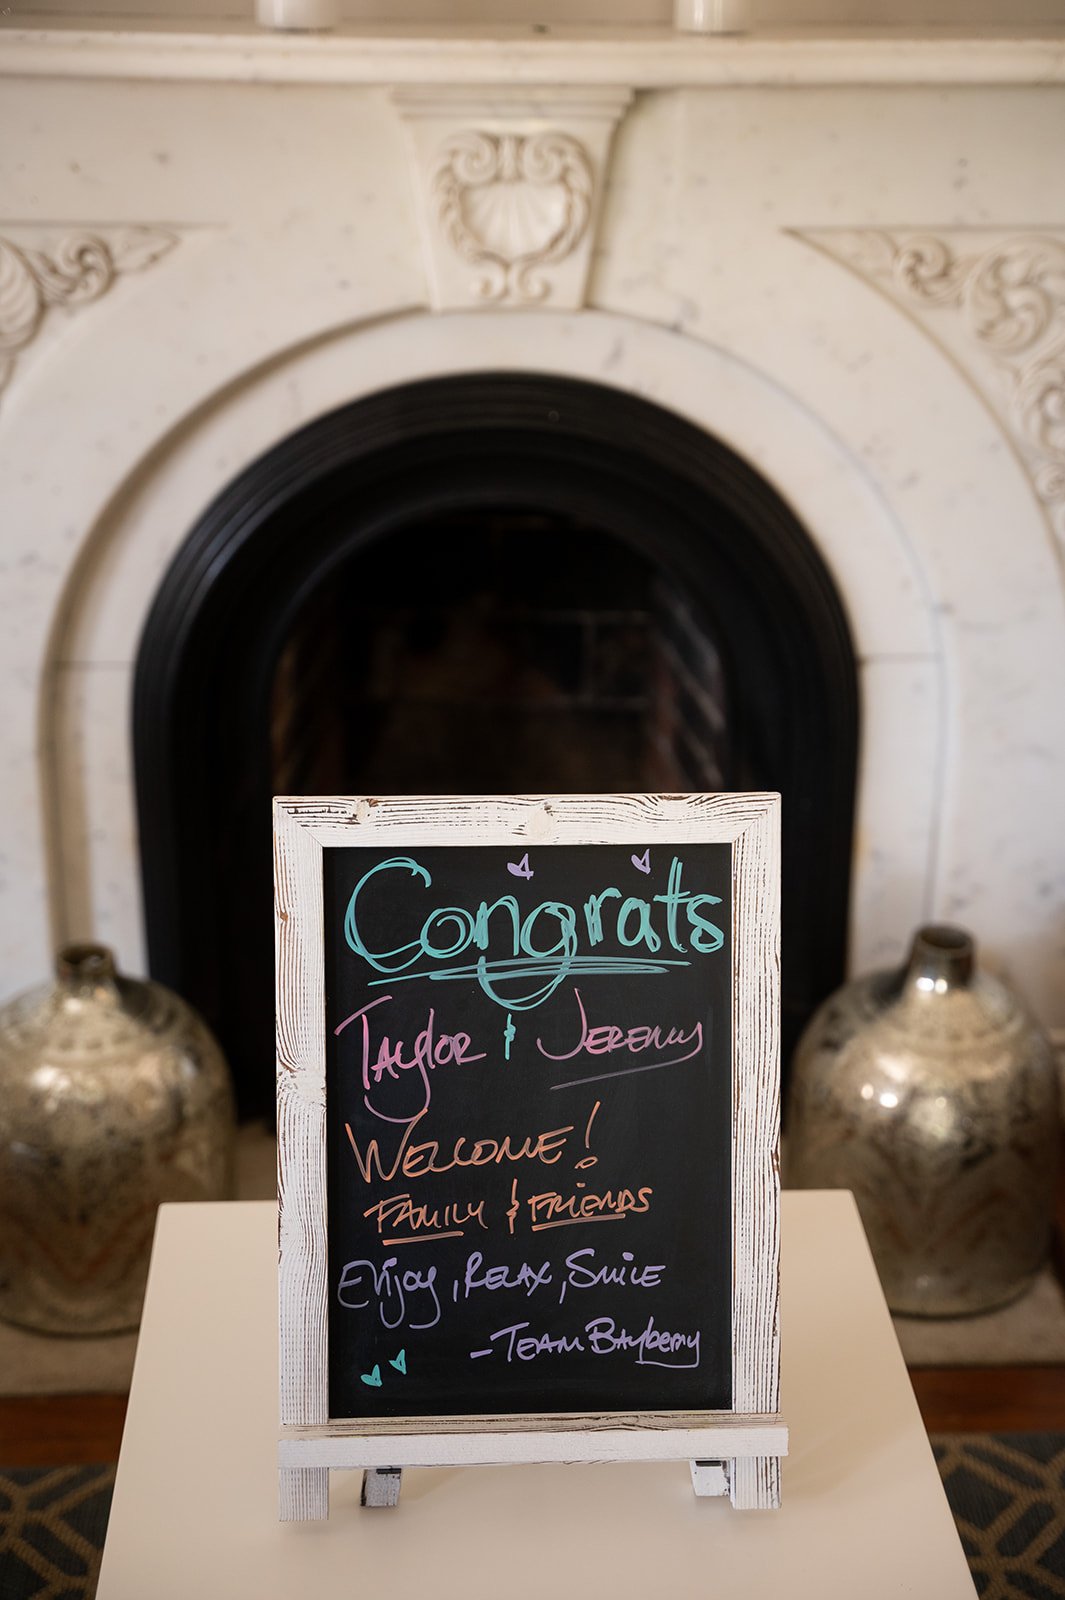 Congrats
Taylor & Jeremy
Welcome!
Family & Friends
Enjoy, Relax, Smile
- Team Bayberry